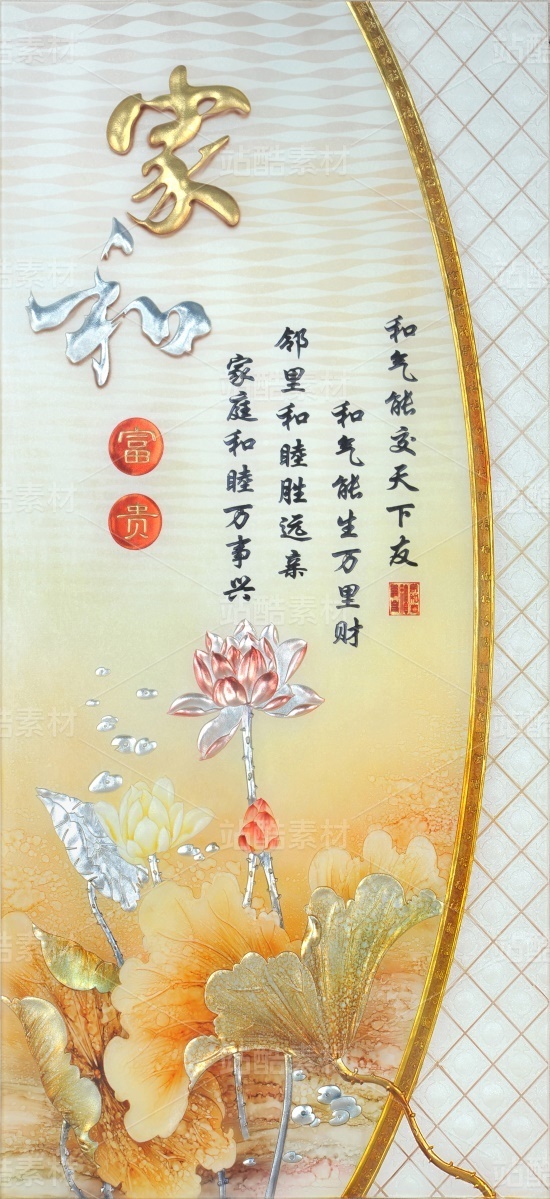 家和
富贵
和气能交天下友
和气能生万里财
邻里和睦胜远亲
家庭和睦万事兴
站酷素材